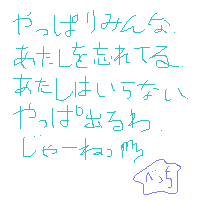 やっぱりみんな
あたしを忘れてる
あたしはいらない
やっぱ出るわ
じゃーねっ
べっち